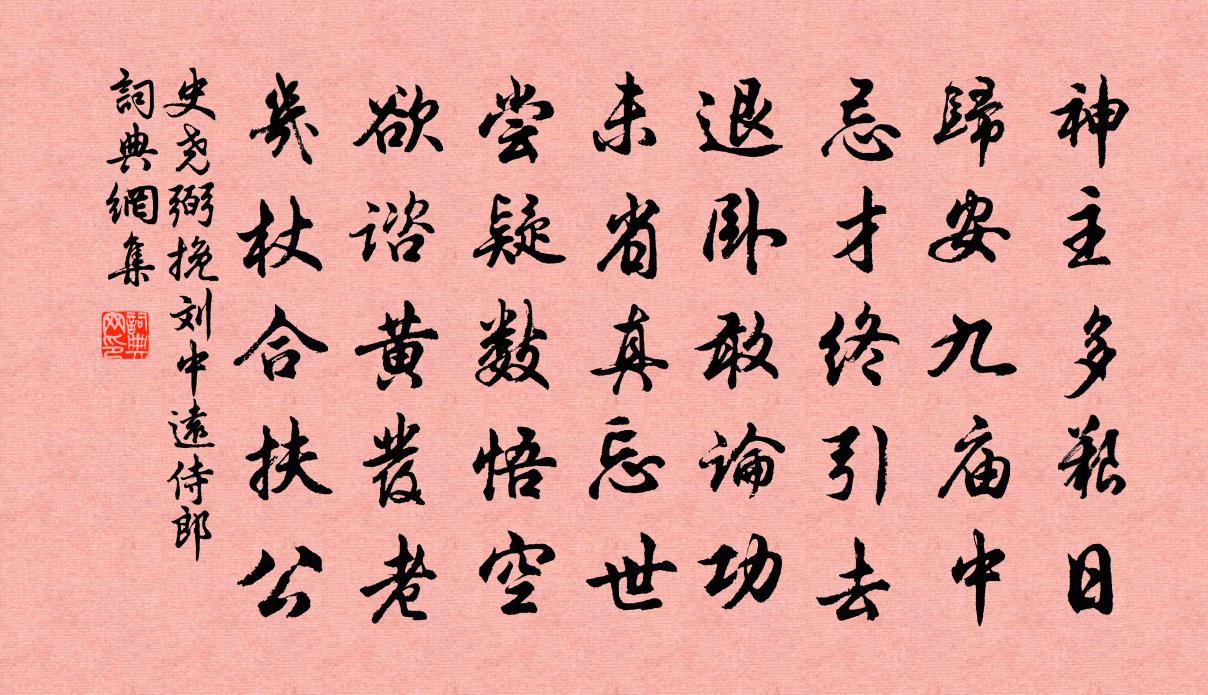 神主多艱日
歸安九庙中
忌才終引去
退卧敢論功
未省真忘世
尝疑數悟空
欲諮黄發老
幾杖合扶公
史尧弼挽刘中遠侍郎
詞典網集
詞典网印